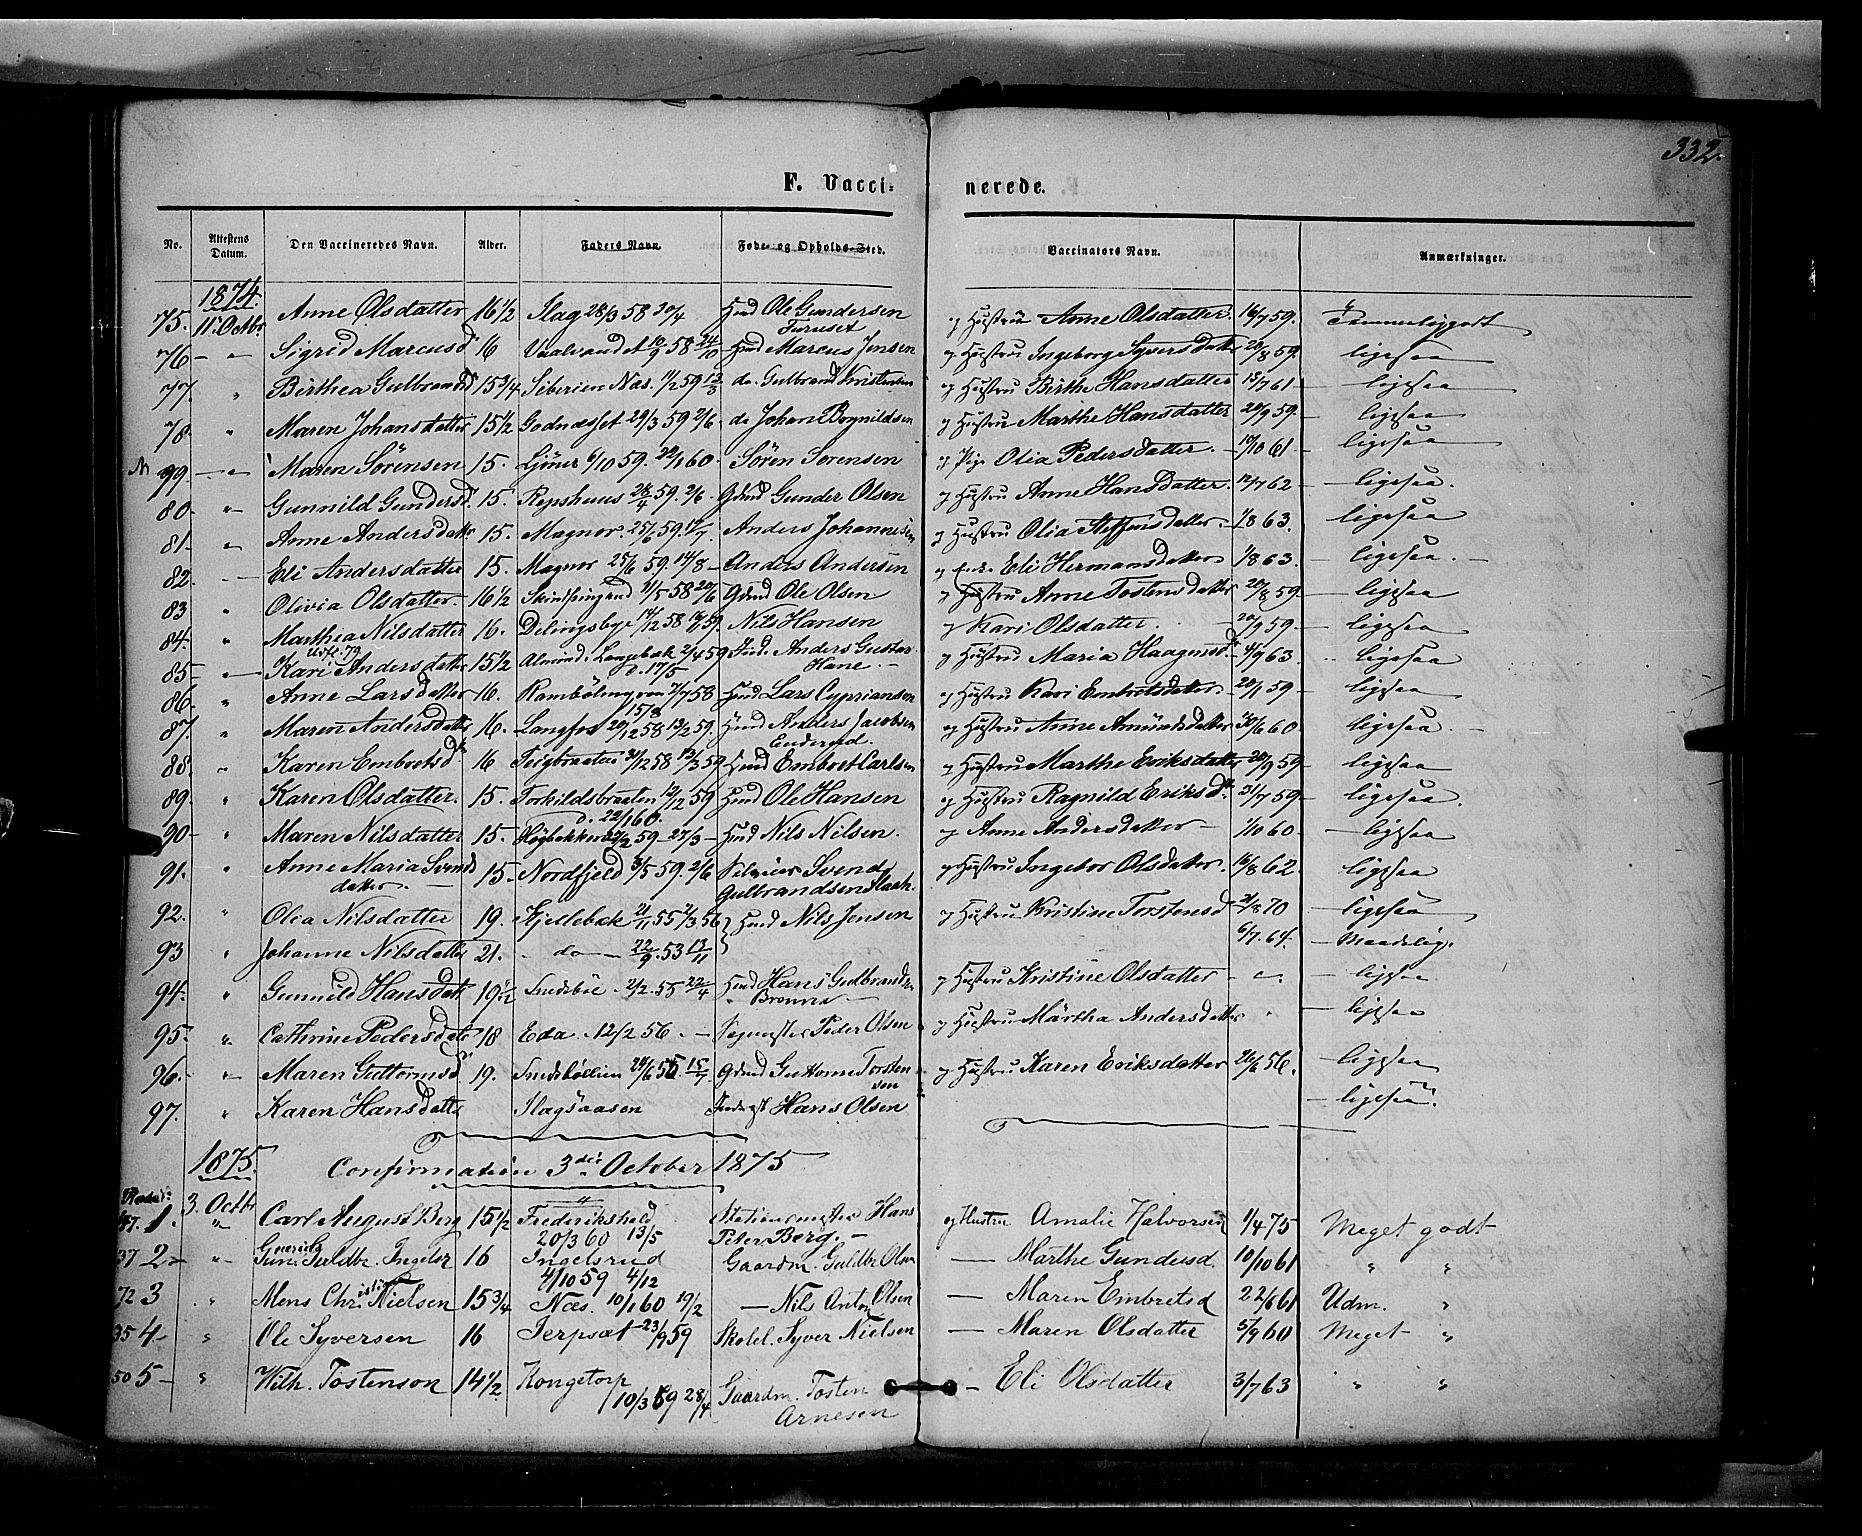 332.
F. Vacci- nerede.
No. Attestens Datum. Den Vaccineredes Navn. Alder. Faders Navn. Føde- og Opholds-Sted. Vaccinators Navn. Anmærkninger.
1874.
75. 11 Octbr. Anne Olsdatter 16 1/2 Slag 28/3 58 30/4 Husd Ole Gundersen og Hustru Anne Olsdatter. 16/7 59. Temmelig godt
Furuset
76 - " Sigrid Marcusd. 16 Vaalvand 10/9 58 24/10 Husd Marcus Jensen og Hustru Ingeborg Syversdatter 20/8 59. ligesaa
77. " Birthea Gulbrandsd 15 3/4 Siberien Næs. 11/2 59 13/3 do. Gulbrand Kristensen og Hustru Birthe Hansdatter 15/7 61 - ligesaa
78. " Maren Johansdatter 15 1/2 Godnæsset 29/3 59 2/6 do Johan Bognildsen og Hustru Marthe Hansdatter 20/9 59. ligesaa
99. " Maren Sörensen 15. 6/10 59. 22/1 60. Sören Sorensen og Pige Olia Pedersdatter. 17/10 61 - ligesaa
80. " Gunnild Gundersd. 15. Repshuus 24/4 59. 2/6. Gdmd Gunder Olsen og Hustru Anne Hansdatter. 12/7 62 - ligesaa.
81. " Anne Andersdatter 15. Magnor. 25/6 59. 17/7. Anders Johannesen og Hustru Olia Steffensdatter. 1/8 63. ligesaa
82. - Eli Andersdatter 15. Magnor 25/6 59. 14/8 - Anders Andersen og Enke Eli Hermansdatter 1/8 63. - ligesaa. -
83 " Olivia Olsdatter. 16 1/2 31/5 58 20/6 Gdmd Ole Olsen og Hustru Anne Tostensdatter 20/8 59 - ligesaa
84. " Marthea Nilsdatter 16. Delingsbye 14/12 58 Nils Hansen og Kari Olsdatter. 20/9 59 - ligesaa
85 - Kari Andersdatter 15 1/2 Almind. Langebæk 2/4 59 Inds. Anders Gustav og Hustru Maria Haagensd. 4/9 63. " ligesaa
d. 17/5 Hane. -
86. " Anne Larsdatter 16. 7/7 58 Husd Lars Cypriansen og Hustru Kari Embretsdatter. 20/1 59 - ligesaa
15/8
87. " Maren Andersdatter 16. Langfos 20/12 58 13/2 59. Husd Anders Jacobsen og Hustru Anne Amundsdatter 30/6 60 ligesaa. -
88. " Karen Embretsd. 16 Teigbraaten 31/12 58 13/3 59 Husd Embret Carlsen og Hustru Marthe Eriksdatter 20/9 59 - ligesaa
89. " Karen Olsdatter. 15. Torkildsbraaten 12/12 59 Husd Ole Hansen og Hustru Ragnild Eriksd. 31/7 59 - ligesaa.
d. 22/1 60.
90 - " Maren Nilsdatter 15. 22/2 59 - 27/3 - Husd Nils Nilsen. og Anne Andersdatter - 1/10 60. - ligesaa
91. " Anne Maria Svends 15. Nordfjeld 3/5 59. 2/6 Svend og Hustru Ingebor Olsdatter. 16/8 62. ligesaa
datter. - Gulbrandsen
92. " Olia Nilsdatter 19. Kjellebæk 21/11 55 2/3 56 } Husd Nils Jensen og Hustru Kristine Torstensd 2/8 70 - ligesaa
93 " Johanne Nilsdatter 21. - do - 22/9. 53 13/11 6/7. 64. - Maadelig.
94. " Gunnild Hansdat. 19 1/2 Snedsböl - 2/2. 55 22/4 Husd Hans Gudbrandsen og Hustru Kristine Olsdatter - " - ligesaa
95. " Cathrine Pedersdat. 18 Eda - 12/2 56. - Peder Olsen og Hustru Märtha Andersdatter " - ligesaa
96. " Maren Guttormsd. 19. Snedsböllien 24/6 55. 15/7 Gdmd Guttorm Torsten og Hustru Karen Eriksdatter 26/6 56. ligesaa
sen
97. " Karen Hansdatter Slagsaasen Hans Olsen - ligesaa.
1875. Confirmation 3die October 1875
1. 3. Octbr. Carl August Berg 15 1/2 Frederikshald Stationsmester Hans og Hustru Amalie Halvorsen 1/4 75 Meget godt
" 20/3 60 13/5 Peter Berg. -
37 2 - " Guldbr. Ingelsr 16 Ingelsrud Gaardm. Guldbr Olsen - Marthe Gundersd. 10/10 61 " "
4/10 59 4/12
72 3 " Mons Christian Nielsen 15 3/4 Næs. 10/1 60 19/2 - Nils Anton Olsen - Maren Embretsd 22/6 61 Udm. "
35 4 - " Ole Syversen 16 Terpsæt 23/9 59 Skolel. Syver Nielsen - Maren Olsdatter 5/9 60 Meget "
50 5 - " Wilh. Tostenson 14 1/2 Kongetorp Gaardm. Tosten - Eli Olsdatter 3/7 63 " "
10/3 59 28/4 Arnesen